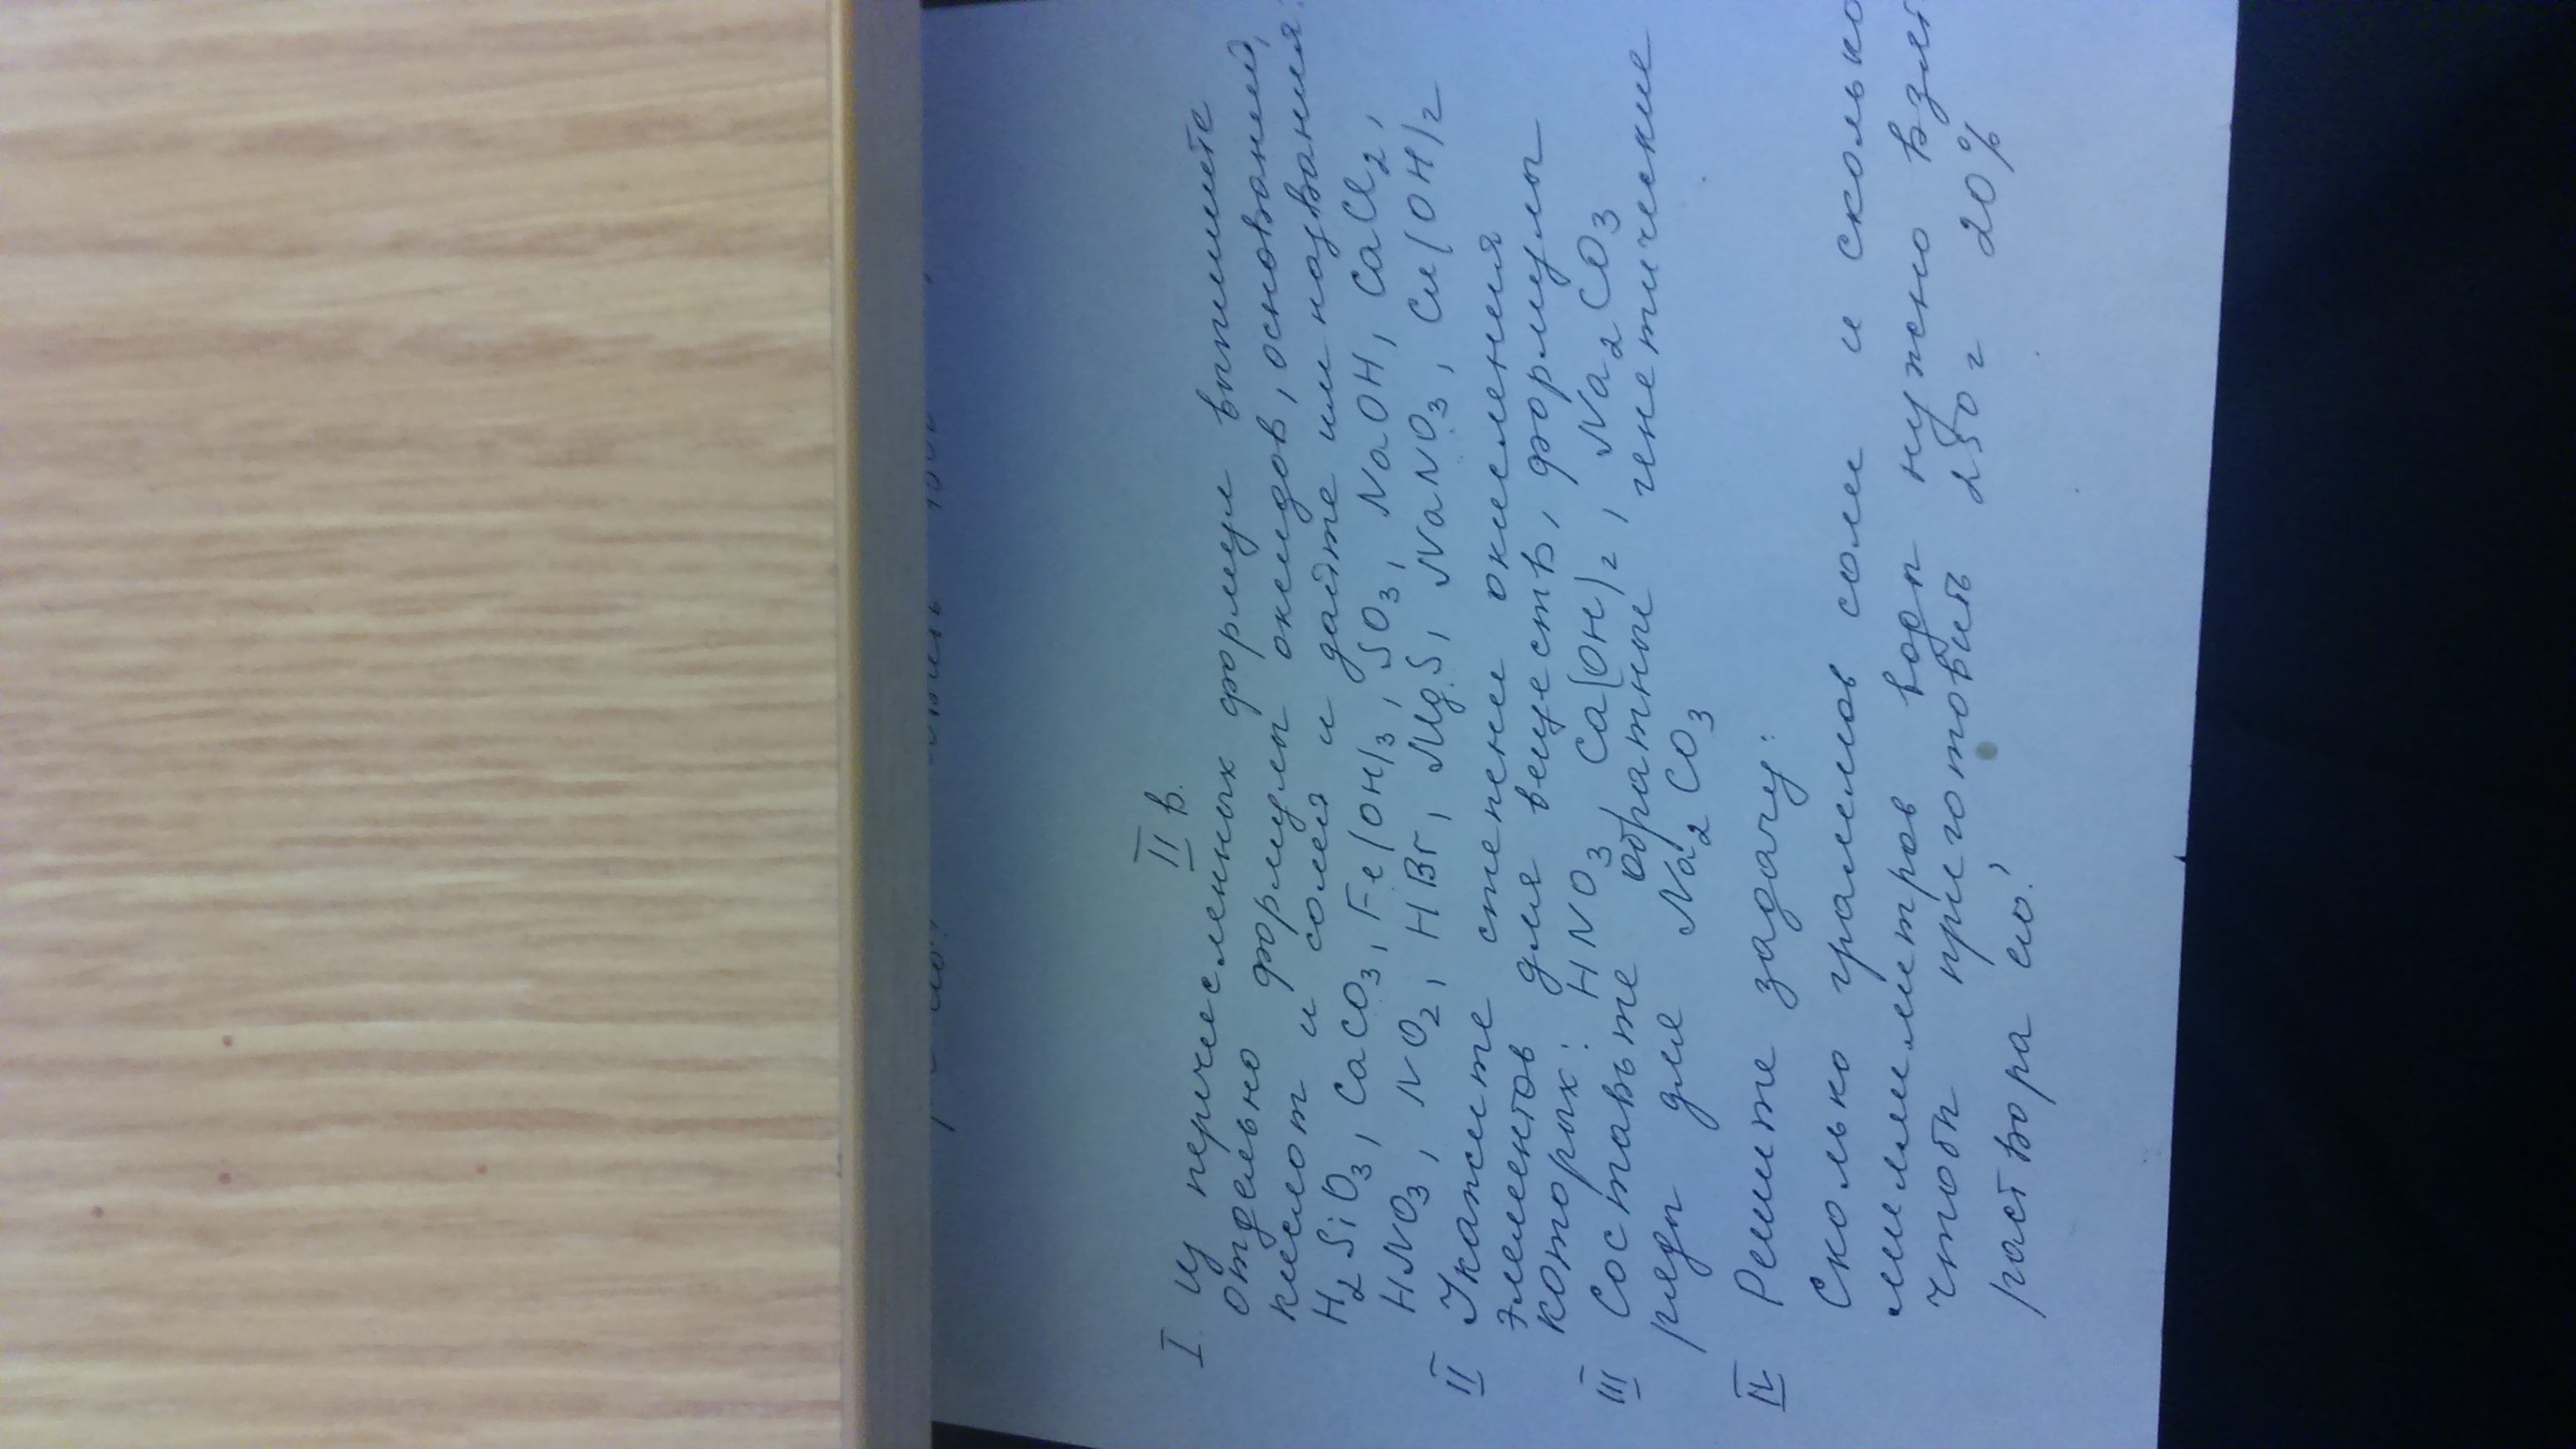 II в.
I. Из перечисленных формул выпишите
отдельно формулы оксидов, оснований,
кислот и солей и дайте им названия:
H2SiO3, CaCO3, Fe(OH)3, SO3, NaOH, CaCl2,
HNO3, NO2, HBr, MgS, NaNO3, Cu(OH)2
II Укажите степени окисления
элементов для веществ, формулы
которых: HNO3 Ca(OH)2, Na2CO3
III Составьте обратные, генетические
ряды для Na2CO3
IV Решите задачу:
Сколько граммов соли и сколько
миллиметров воды нужно взять
чтобы приготовить 250 г 20%
раствора её?